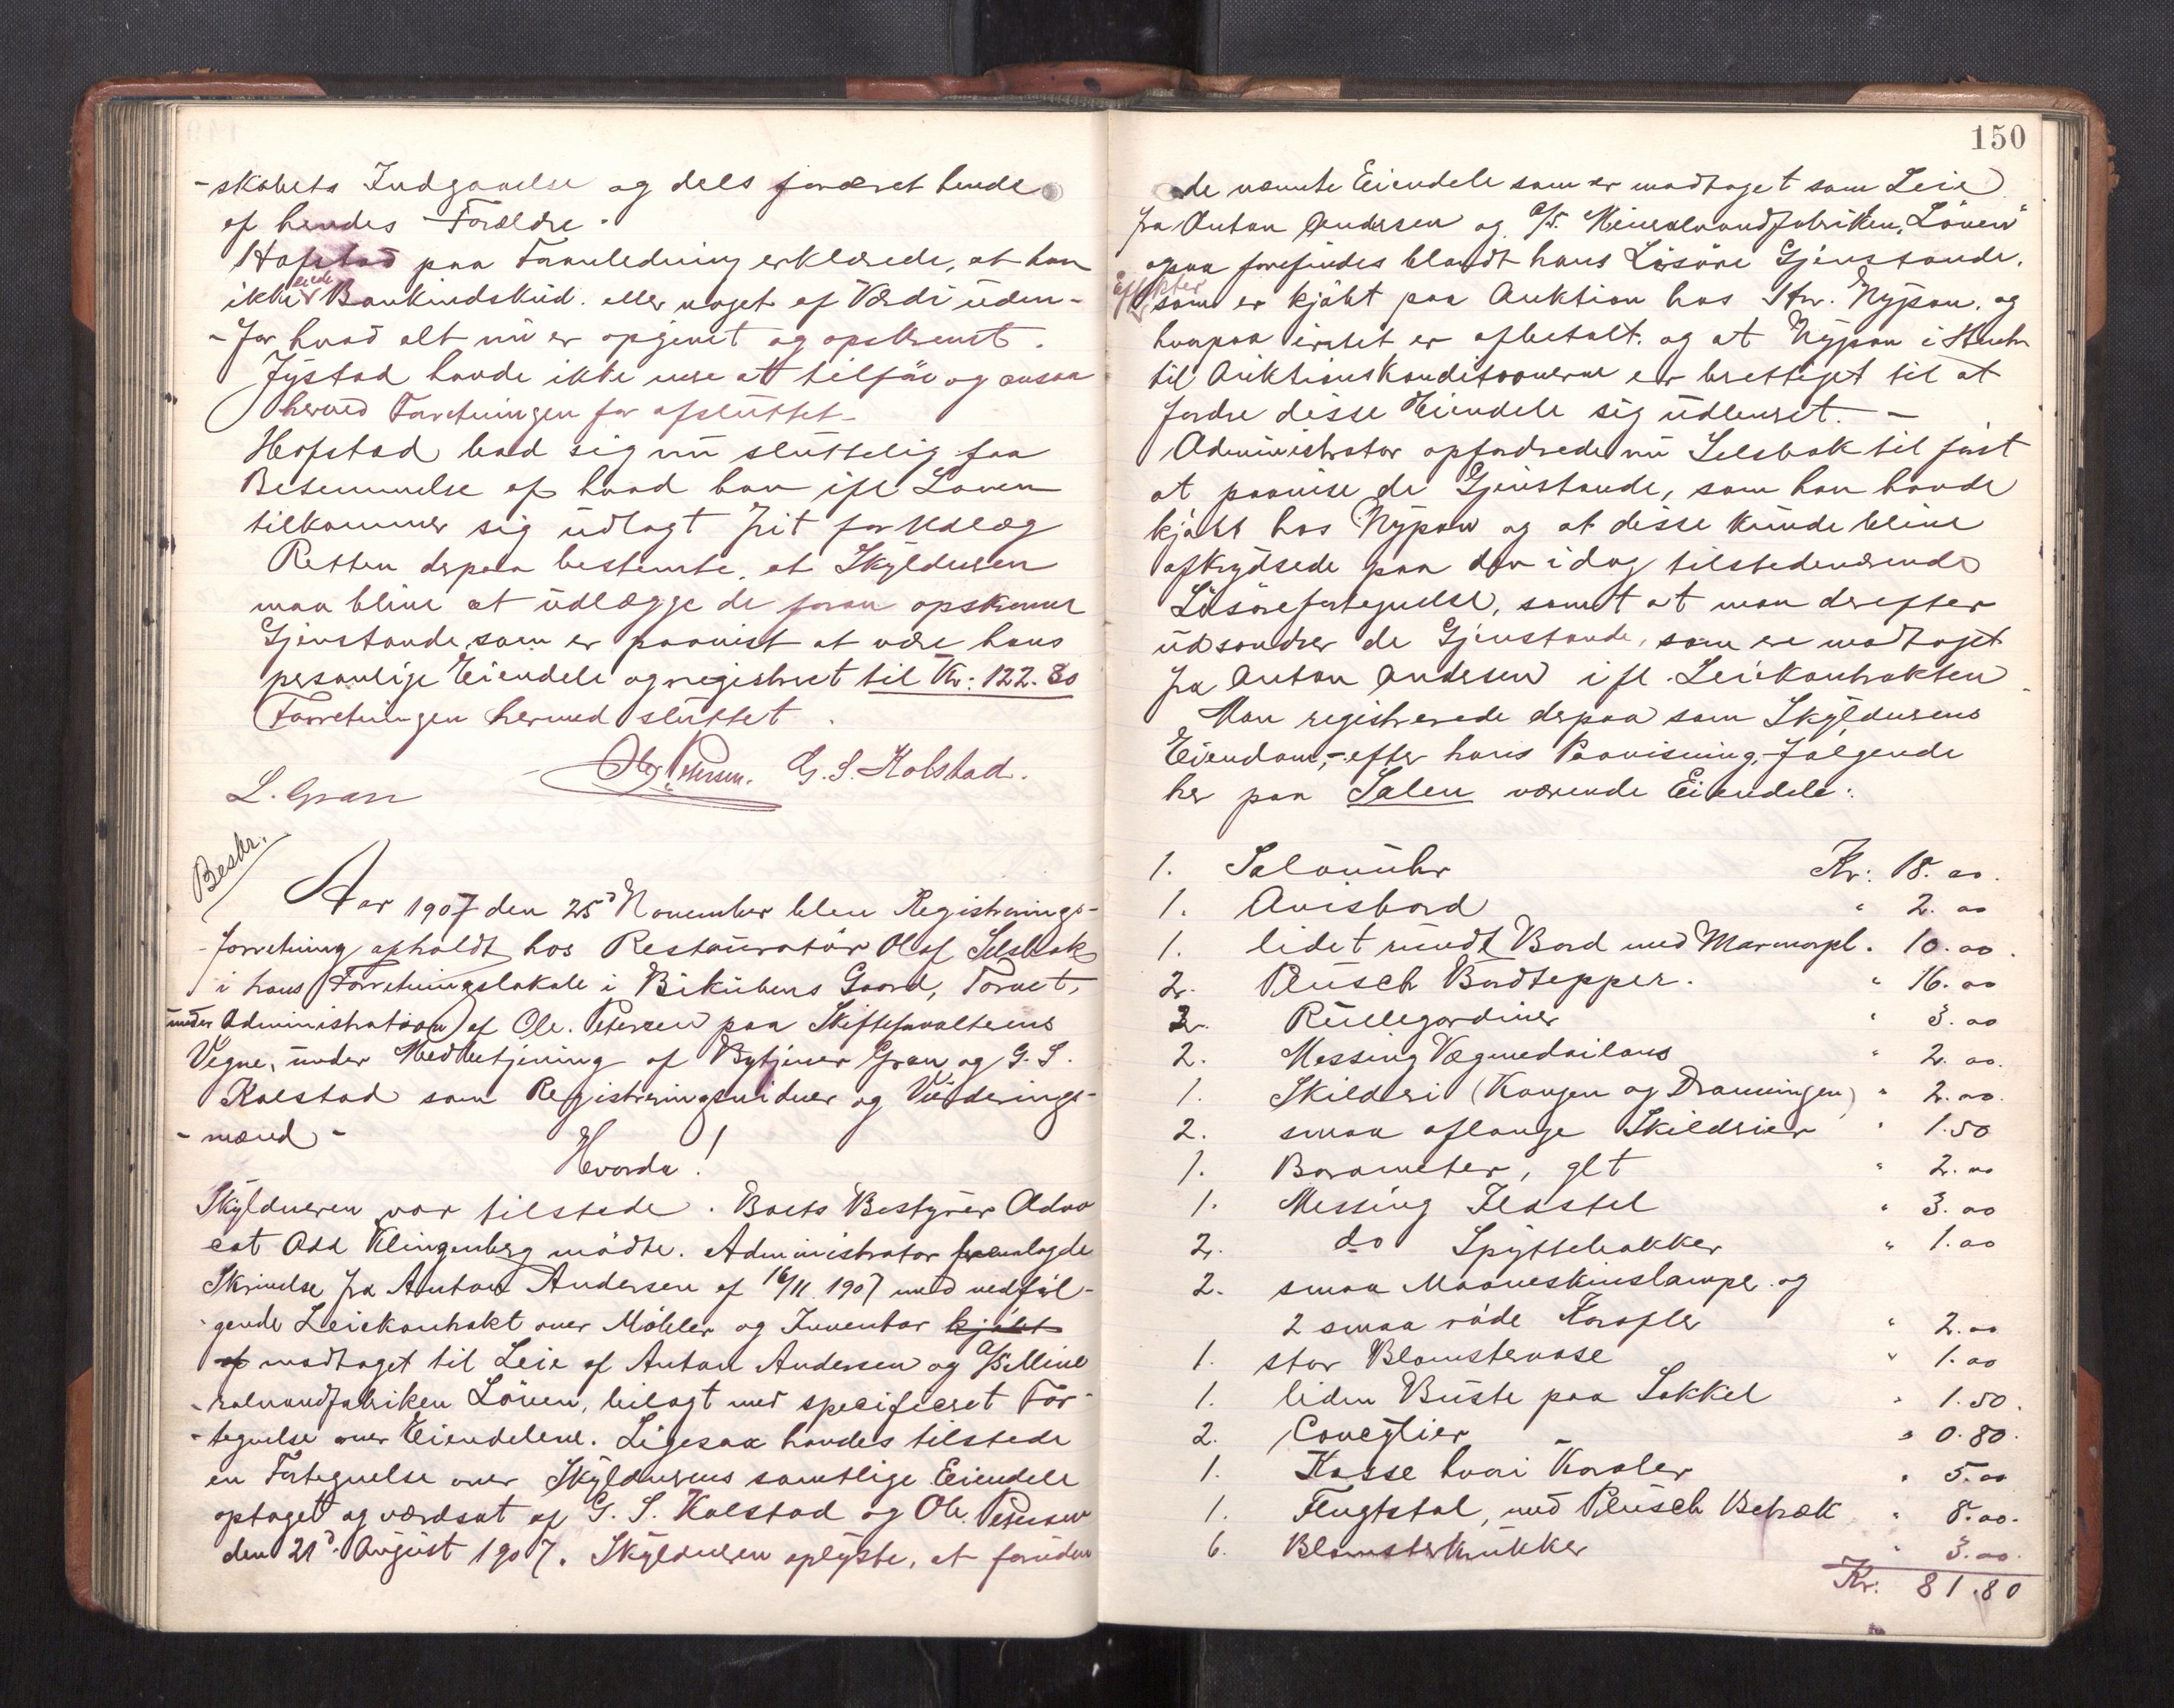 -skabets Indgaaelse og dels foræret hende
af hendes Forældre.
Hofstad paa Foranledning erklærede, at han
ikke eiede Bankindskud eller noget af Værdi uden-
-for hvad alt nu er opgivet og opskrevet.
Jystad havde ikke mere at tilføie og ansaa
herved Forretningen for afsluttet.
Hofstad bad sig nu sluttelig faa
Bestemmelse af hvad han ifl Loven
tilkommer sig udlagt frit for Udlæg
Retten derpaa bestemte, at Skyldneren
maa blive at udlægge de foran opskrevne
Gjenstande, som er paavist at være hans
personlige Eiendele og registreret til Kr: 122.80
Forretningen hermed sluttet.
Ole Petersen. G. S. Kolstad.
L. Gran
Beskr.
Aar 1907 den 25d November blev Registrerings-
-forretning afholdt hos Restauratør Olaf Selsbak
i hans Forretningslokale i Bikubens Gaard, Torvet,
under Administration af Ole. Petersen paa Skifteforvalterens
Vegne, under Medbetjening af Bytjener Gran og G. S.
Kolstad som Registreringsvidner og Vurderings-
-mænd-
Hvorda!
Skyldneren var tilstede. Boets Bestyrer Advo
cat Odd Klingenberg mødte. Administrator fremlagde
Skrivelse fra Anton Andersen af 16/11 1907 med vedføl-
-gende Leiekontrakt over Møbler og Inventar kjøbt
af modtaget til Leie af Anton Andersen og A/S Mine
-ralvandfabriken Löven, bilagt med specificeret For-
-tegnelse over Eiendelene. Ligesaa havdes tilstede
en Fortegnelse over Skyldnerens samtlige Eiendele
optaget og værdsat af G. S. Kolstad og Ole Petersen
den 21d August 1907. Skyldneren oplyste, at foruden
150
de nævnte Eiendele som er modtaget som Leie
fra Anton Andersen og A/S. Mineralvandfabriken "Löven"
ogsaa forefindes blandt hans Løsøre Gjenstande,
Effekter som er kjøbt paa Auktion hos Hr. Nypan, og
hvorpaa intet er afbetalt. og at Nypan i Henh
til Auktionskonditionerne er berettiget til at
fordre disse Eiendele sig udleveret. -
Administrator opfordrede nu Selsbak til først
at paavise de Gjenstande, som han havde
kjøbt hos Nypan og at disse kunde blive
afkrydsede paa den idag tilstedeværende
Løsørefortegnelse, samt at man derefter
udsondrer de Gjenstande, som er modtaget
fra Anton Andersen ifl. Leiekontrakten
Man registrerede derpaa som Skyldnerens
Eiendom,- efter hans Paavisning, følgende
her paa Salen værende Eiendele:
1. Salonuhr Kr: 18.00.
1. Avisbord " 2.00
1. lidet rundt Bord med Marmorpl. 10.00.
2. Plusch Bordtepper. " 16.00
2. Rullegardiner " 3.00
2. Messing Vægmedailons " 2.00.
1. Skilderi (Kongen og Dronningen) " 2.00.
2. smaa aflange Skilderier " 1.50
1. Barometer, glt " 2.00
1. Messing Ildstel " 3.00
2. do Spyttebakker " 1.00
2. smaa Maaneskinslampe og
2 smaa røde Kaafler " 2.00
1. stor Blomstervase " 1.00
1. liden Buste paa Sokkel " 1.50.
2. Conçylier " 0.80.
1. Kasse hvori Koraler " 5.00
1. Flugtstol, med Plusch Betræk " 8.00.
6. Blomsterkrukker " 3.00.
Kr. 81.80